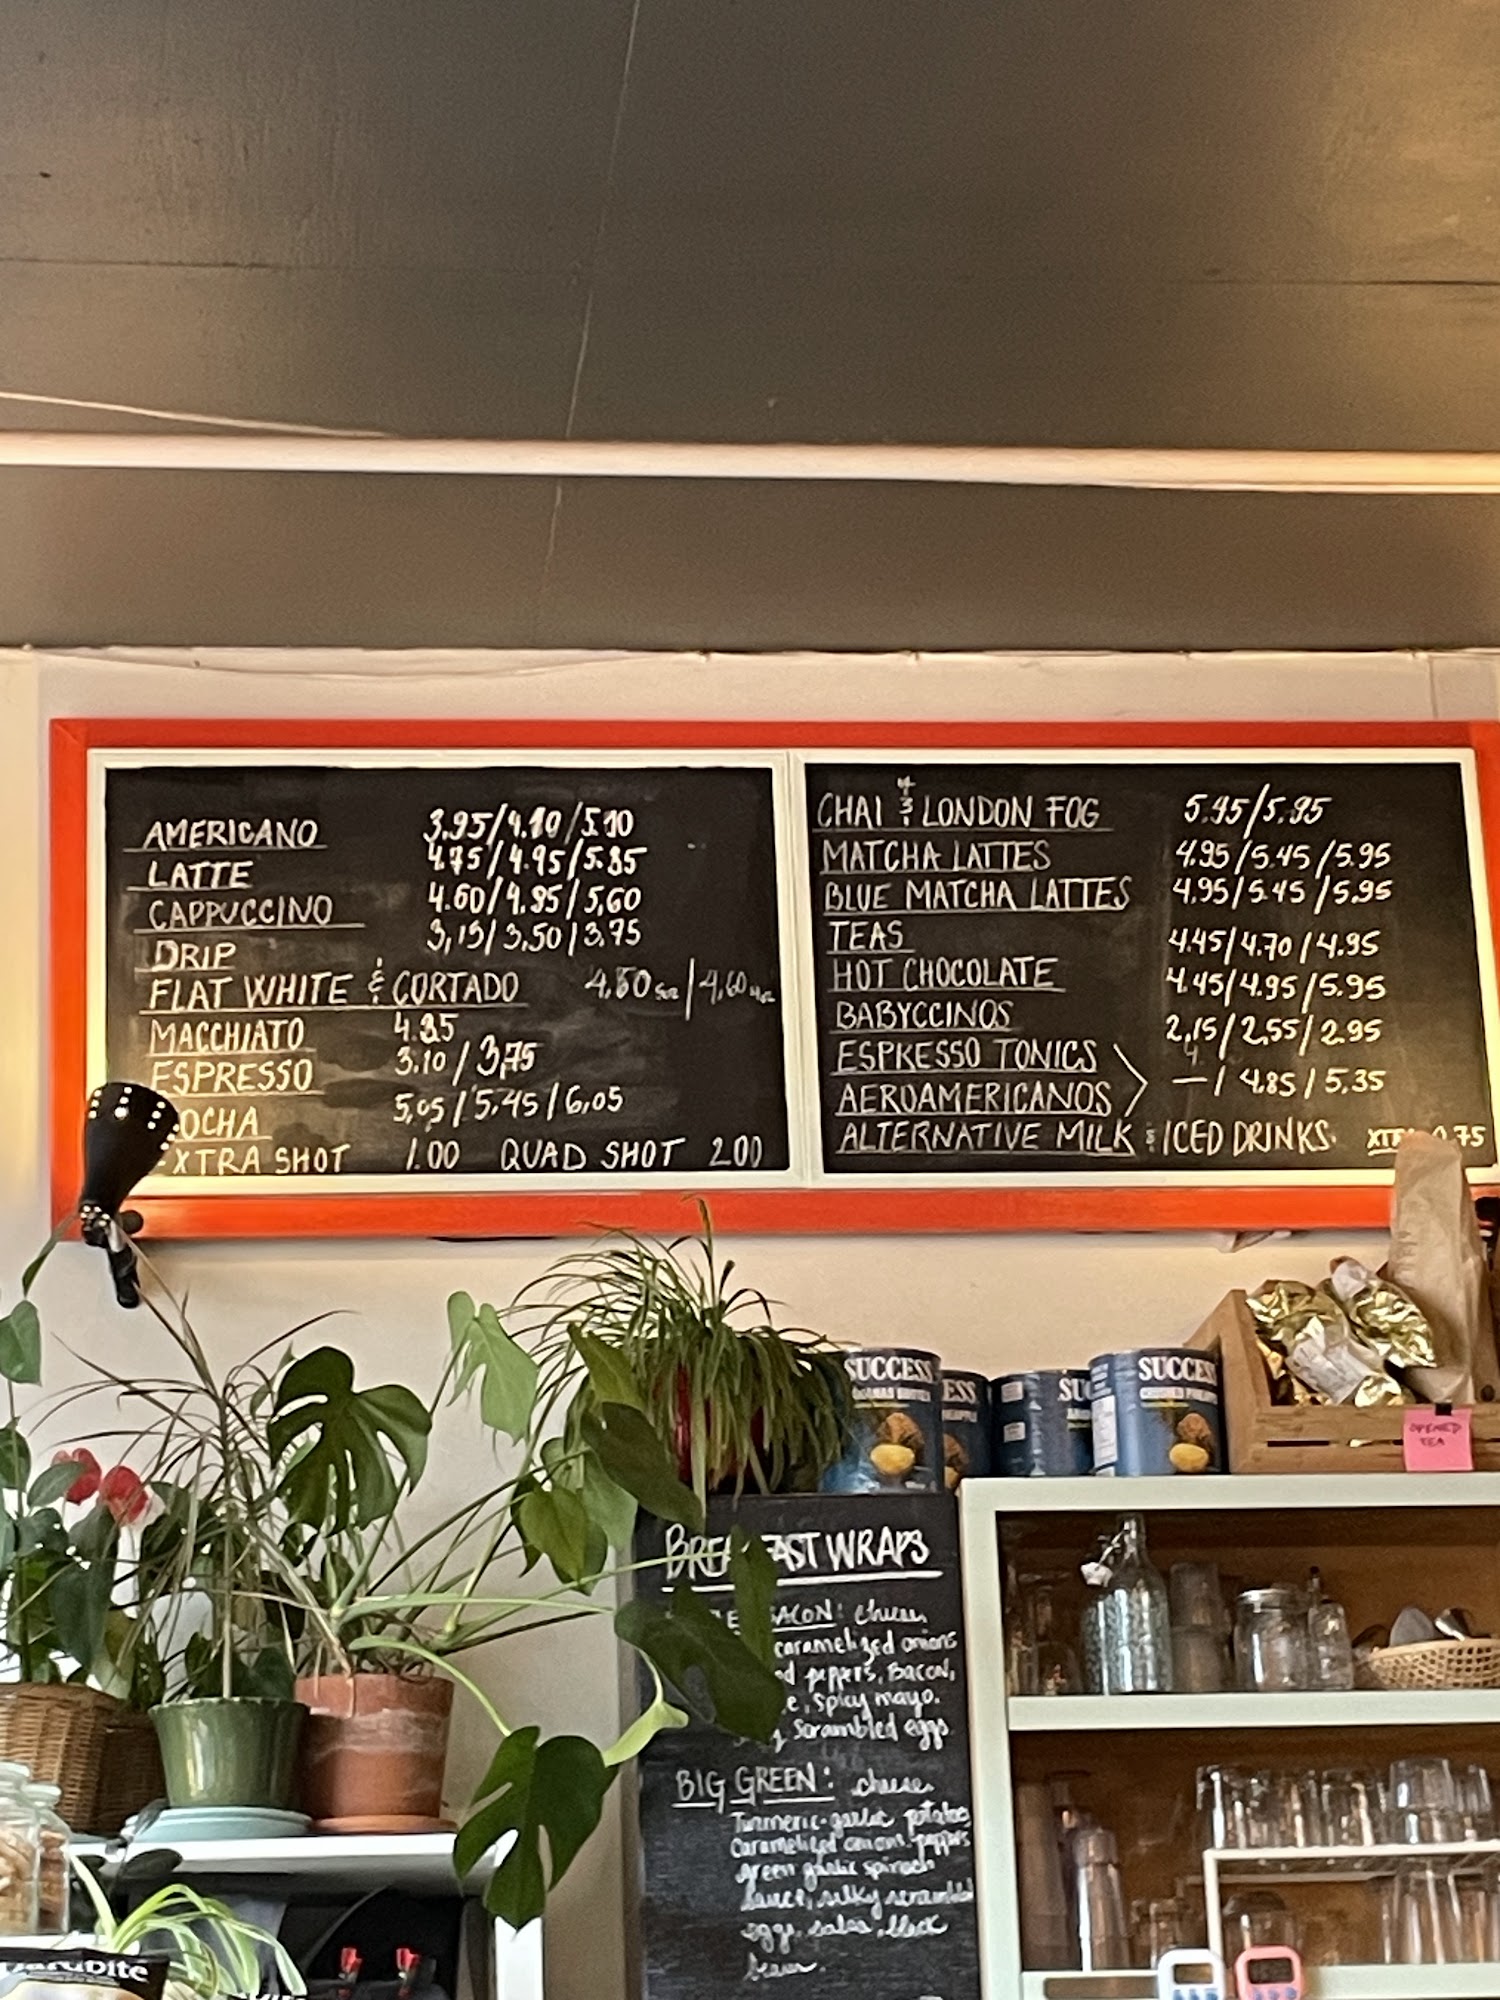 AMERICANO 3.95/4.10/5.10
LATTE 4.75/4.95/5.85
CAPPUCCINO 4.60/4.95/5.60
DRIP 3.15/3.50/3.75
FLAT WHITE & CORTADO 4.60/4.60
MACCHIATO 4.25
ESPRESSO 3.10/3.75
OCHA 5.05/5.45/6.05
EXTRA SHOT 1.00 QUAD SHOT 2.00
CHAI & LONDON FOG 5.95/5.95
MATCHA LATTES 4.95/5.45/5.95
BLUE MATCHA LATTES 4.95/5.45/5.95
TEAS 4.45/4.70/4.95
HOT CHOCOLATE 4.45/4.95/5.95
BABYCCINOS 2.15/2.55/2.95
ESPRESSO TONICS
AEROAMERICANOS —/4.85/5.35
ALTERNATIVE MILK & ICED DRINKS 0.75
SUCCESS
ESS
SU
SUCCESS
OPENED
TEA
BREAKFAST WRAPS
BACON: cheese,
caramelized onions
peppers, Bacon,
spicy mayo.
scrambled eggs
BIG GREEN: cheese
Turmeric-garlic potatoes
Caramelized onions peppers
green garlic spinach
sauce, silky scrambled
eggs, salsa, black
beans.